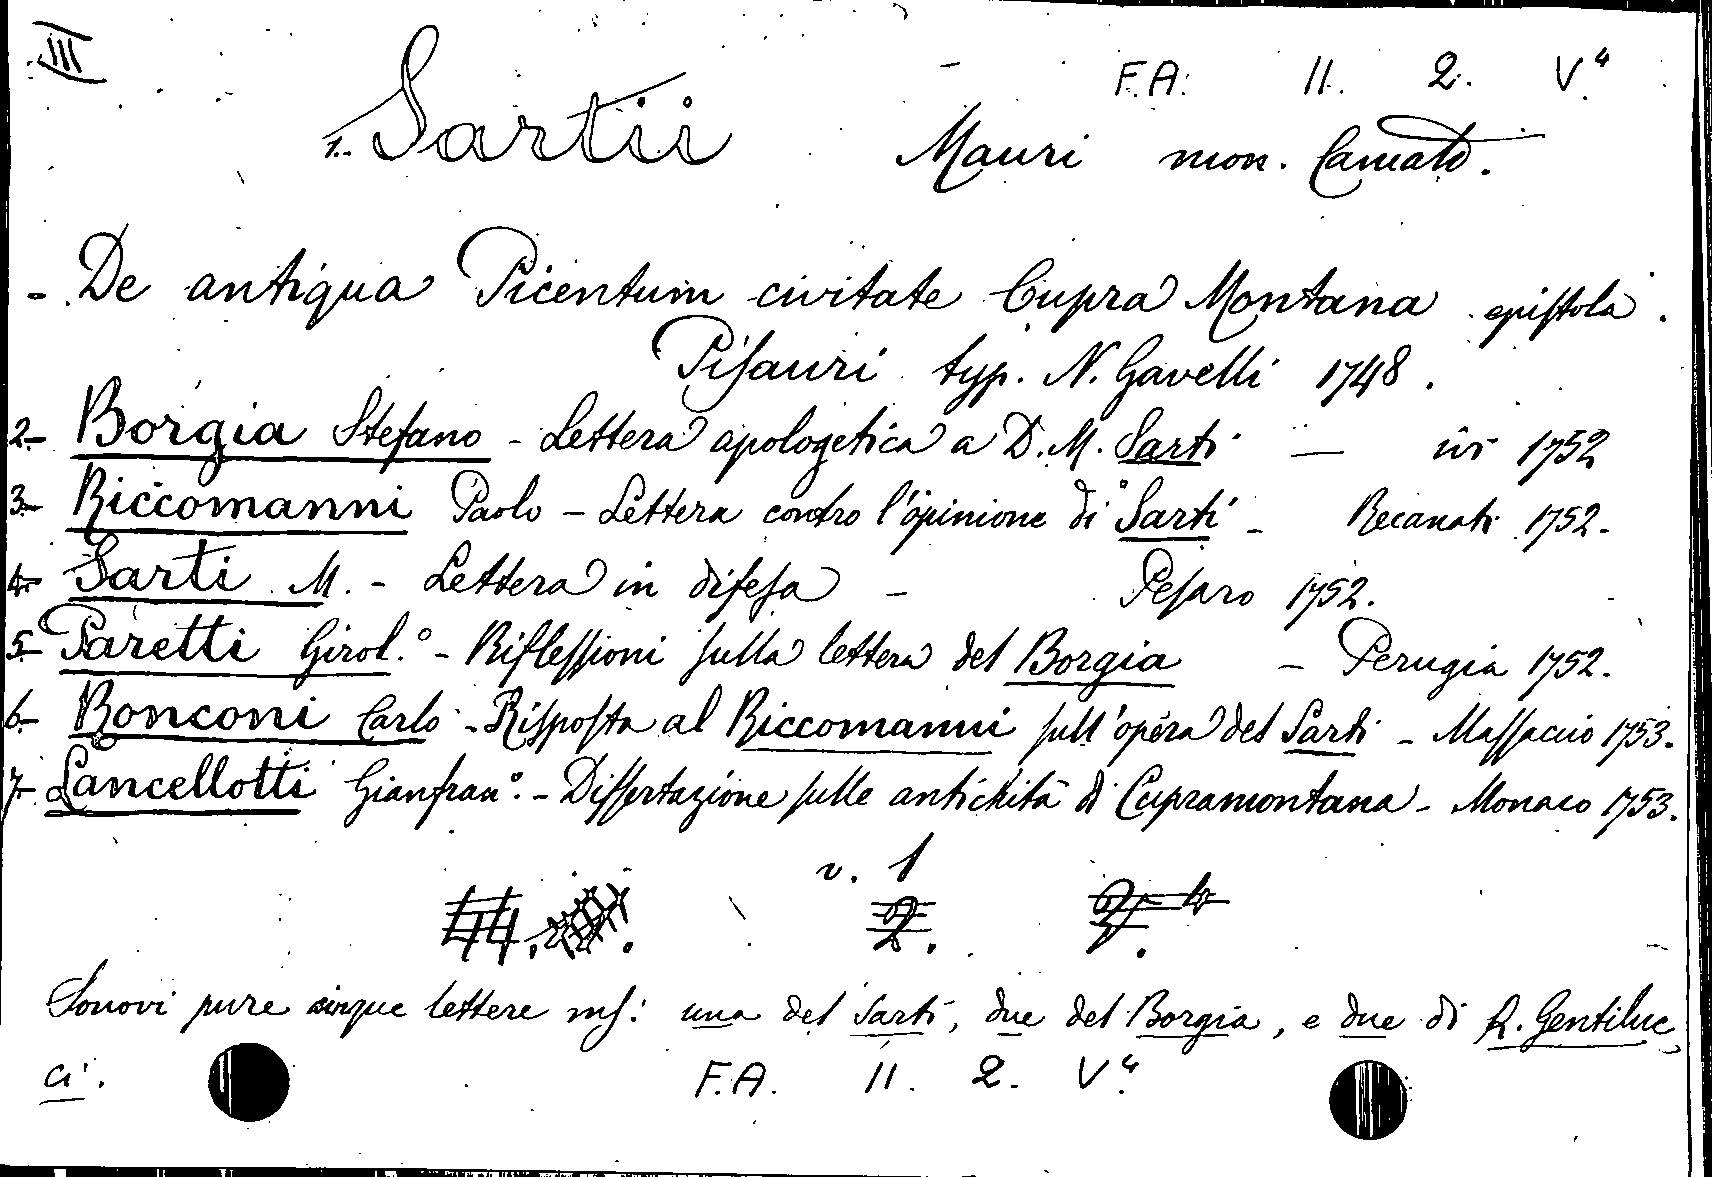 III
F.A. II. 2. V⁴
1. Sartii Mauri mon. Camald.
- De antiqua Picentum civitate Cupra Montana epistola.
Pisauri typ. N. Gavelli 1748.
2- Borgia Stefano - Lettera apologetica a D. M. Sarti — ivi 1752
3- Riccomanni Paolo - Lettera contro l'opinione di Sarti - Recanati 1752.
4- Sarti M. - Lettera in difesa - Pesaro 1752.
5- Paretti Girol.° - Riflessioni sulla lettera del Borgia - Perugia 1752.
6- Ronconi Carlo - Risposta al Riccomanni sull'opera del Sarti - Massaccio 1753.
7- Lancellotti Gianfran°. - Dissertazione sulle antichità di Cupramontana - Monaco 1753.
v. 1
2.
Sonovi pure cinque lettere ms: una del Sarti, due del Borgia, e due di R. Gentiluc,
ci.
F.A. II. 2. V⁴